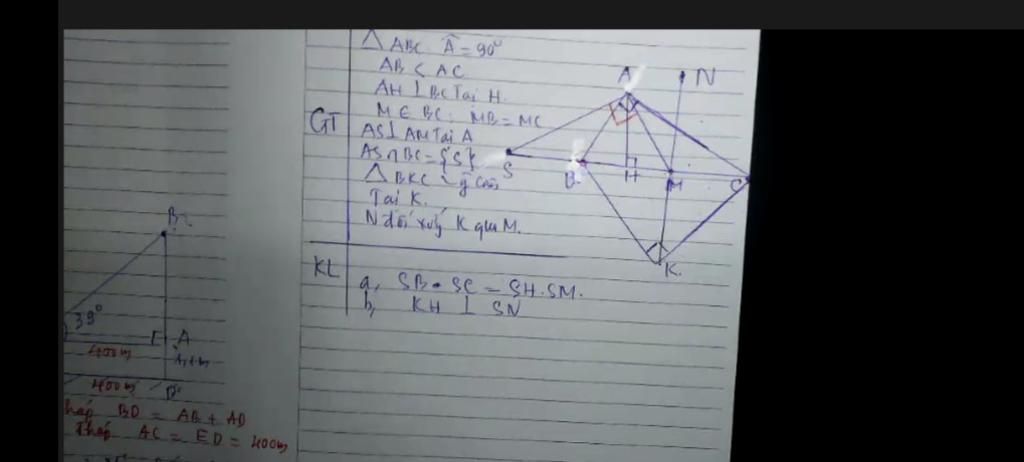 △ABC. Â = 90°
AB < AC
AH ⊥ BC Tại H.
M ∈ BC: MB = MC
GT
AS ⊥ AM Tại A
AS ∩ BC = {S}
△BKC cân
Tại K.
N đối xứng K qua M.
KL
a, SB . SC = SH . SM.
b, KH ⊥ SN
A
N
S
B
H
M
C
K.
B
39°
A
400m
400m
BD = AB + AD
Tháp AC = ED = 400m